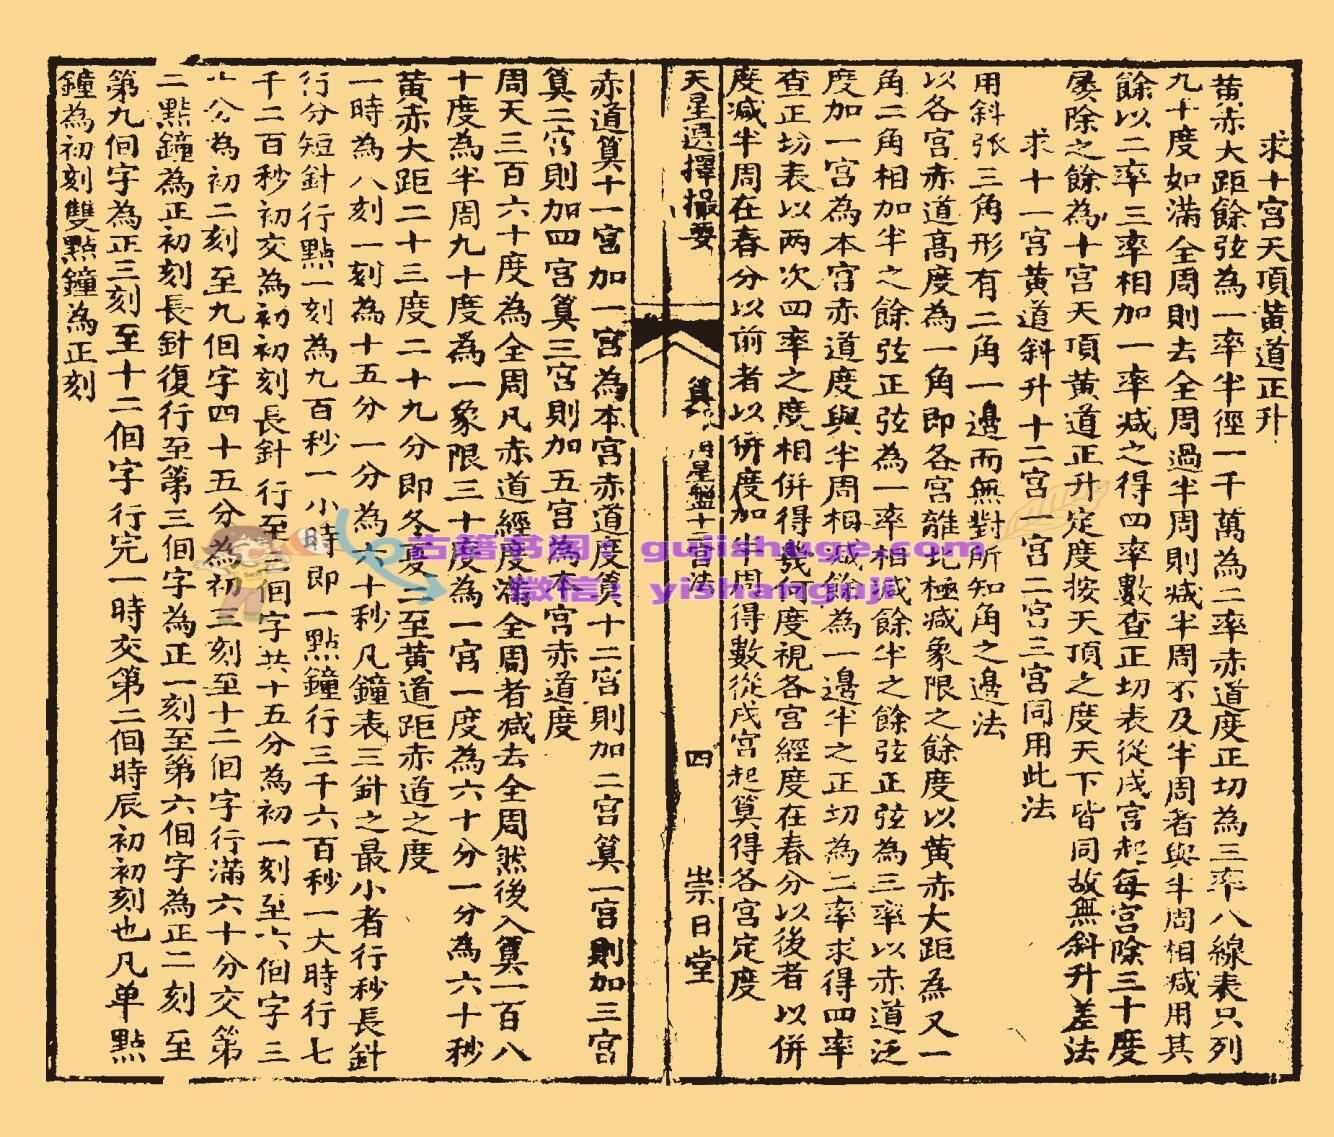 求十宮天頂黃道正升
黃赤大距餘弦為一率半徑一千萬為二率赤道度正切為三率八線表只列
九十度如滿全周則去全周過半周則减半周不及半周者與半周相减用其
餘以二率三率相加一率减之得四率數查正切表從戌宮起每宮除三十度
屢除之餘為十宮天頂黃道正升定度按天頂之度天下皆同故無斜升差法
求十一宮黃道斜升十二宮一宮二宮三宮同用此法
用斜张三角形有二角一邊而無對所知角之邊法
以各宮赤道高度為一角即各宮離北極减象限之餘度以黃赤大距為又一
角二角相加半之餘弦正弦為一率相减餘半之餘弦正弦為三率以赤道泛
度加一宮為本宮赤道度與半周相减餘為一邊半之正切為二率求得四率
查正切表以两次四率之度相併得幾何度視各宮經度在春分以後者以併
度减半周在春分以前者以併度加半周得數從戌宮起算得各宮定度
天星選擇撮要
算
星盤十二宮法
四
崇日堂
赤道算十一宮加一宮為本宮赤道度算十二宮則加二宮算一宮則加三宮
算二宮則加四宮算三宮則加五宮為本宮赤道度
周天三百六十度為全周凡赤道經度滿全周者减去全周然後入算一百八
十度為半周九十度為一象限三十度為一宮一度為六十分一分為六十秒
黃赤大距二十三度二十九分即冬夏二至黃道距赤道之度
一時為八刻一刻為十五分一分為六十秒凡鐘表三針之最小者行秒長針
行分短針行點一刻為九百秒一小時即一點鐘行三千六百秒一大時行七
千二百秒初交為初初刻長針行至三個字共十五分為初一刻至六個字三
十分為初二刻至九個字四十五分為初三刻至十二個字行滿六十分交第
二點鐘為正初刻長針復行至第三個字為正一刻至第六個字為正二刻至
第九個字為正三刻至十二個字行完一時交第二個時辰初初刻也凡单點
鐘為初刻雙點鐘為正刻
古籍书阁：gujishuge.com
微信：yishanguji